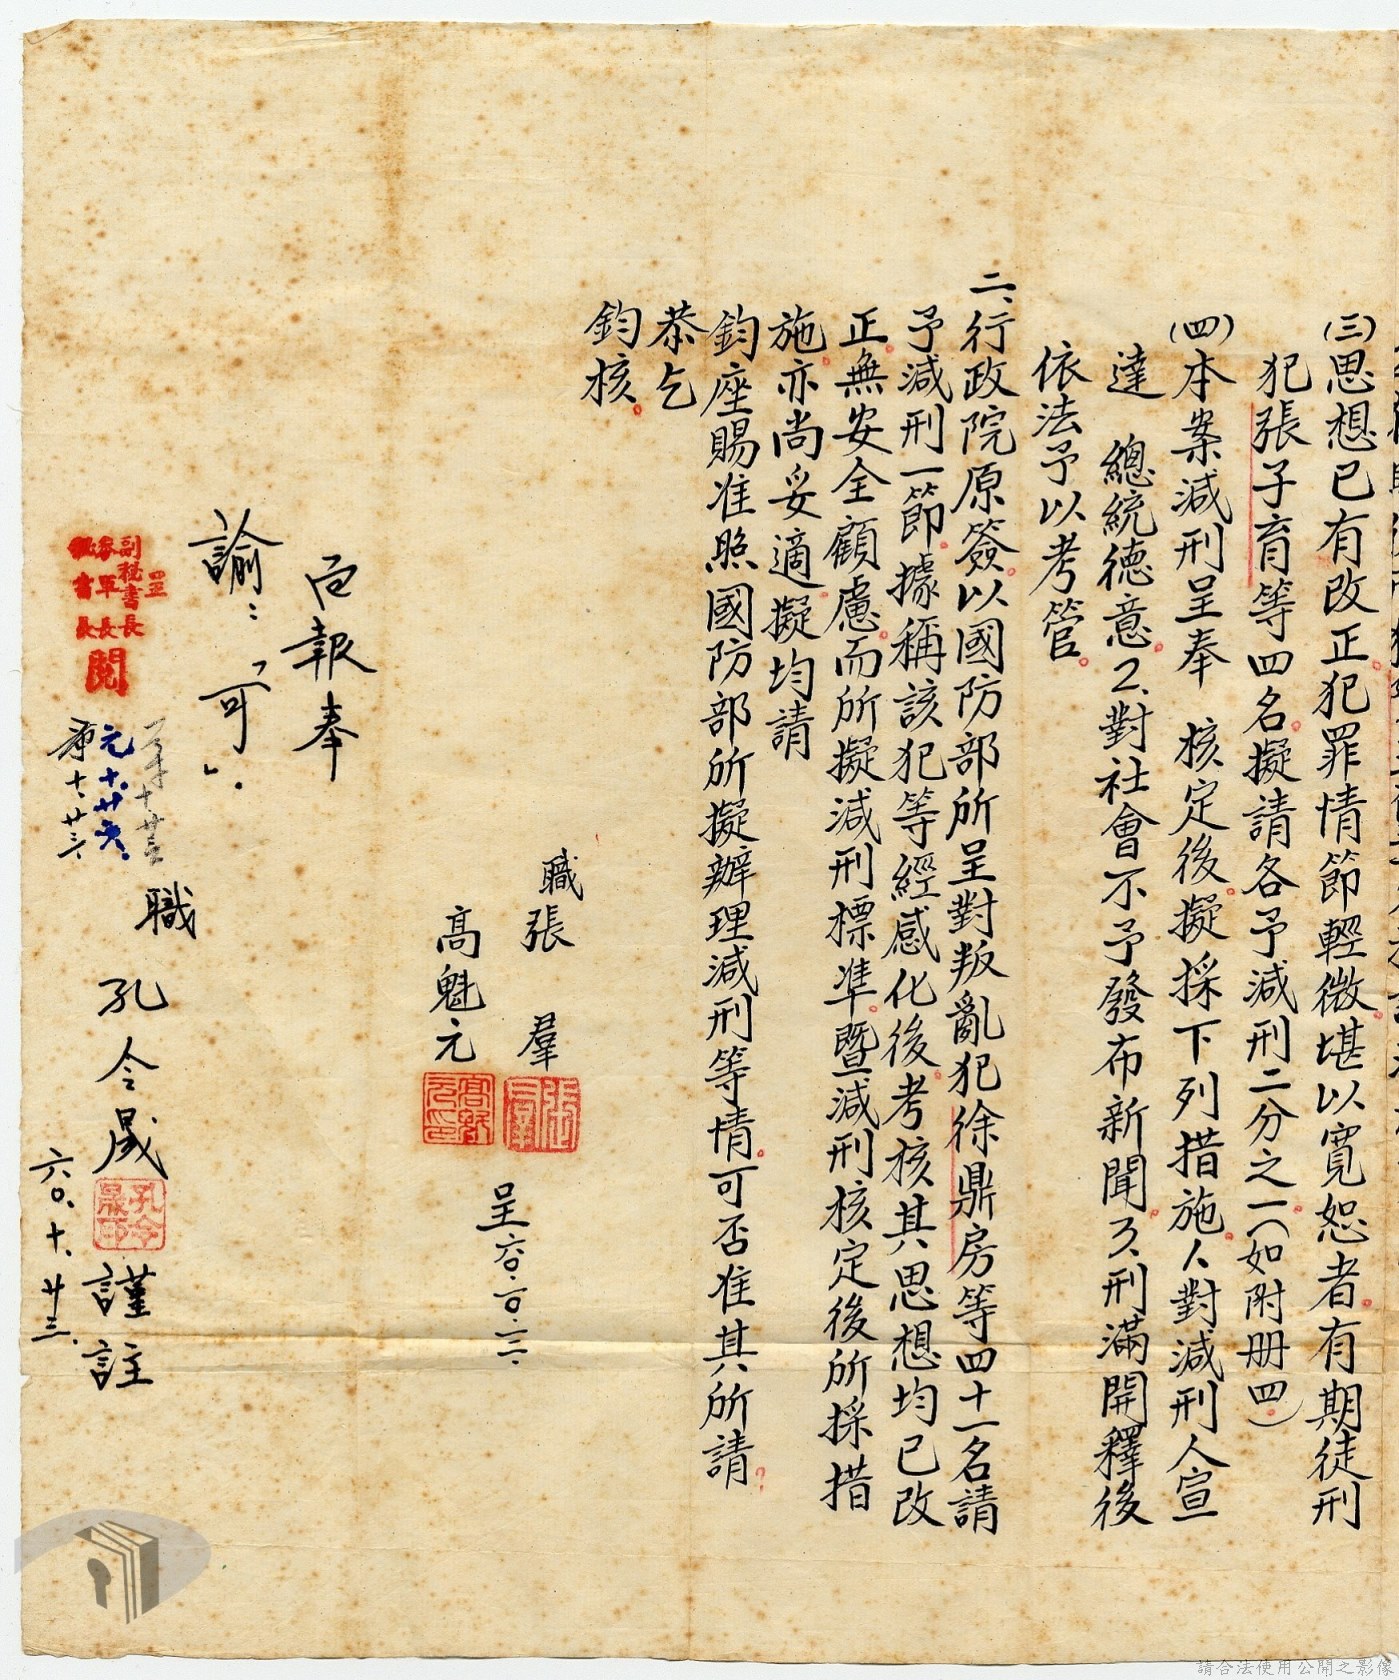 ㈢思想已有改正犯罪情節輕微。堪以寬恕者。有期徒刑
犯張子育等四名。擬請各予減刑二分之一。(如附冊四。)
㈣本案減刑呈奉 核定後。擬採下列措施。1.對減刑人宣
達 總統德意。2.對社會不予發布新聞。3.刑滿開釋後
依法予以考管。
二、行政院原簽。以國防部所呈對叛亂犯徐鼎房等四十一名請
予減刑一節。據稱該犯等經感化後。考核其思想均已改
正。無安全顧慮。而所擬減刑標準。暨減刑核定後所採措
施。亦尚妥適。擬均請
鈞座賜准照國防部所擬辦理減刑等情。可否准其所請?
恭乞
鈞核。
職張 羣
高魁元
呈 六○.一○.二二.
面報奉
諭:「可」.
職 孔令晟 謹註
六○.十.廿三.
副秘書長
參軍長
秘書長
閱
元十.廿六.
十.廿三.
請合法使用公開之影像